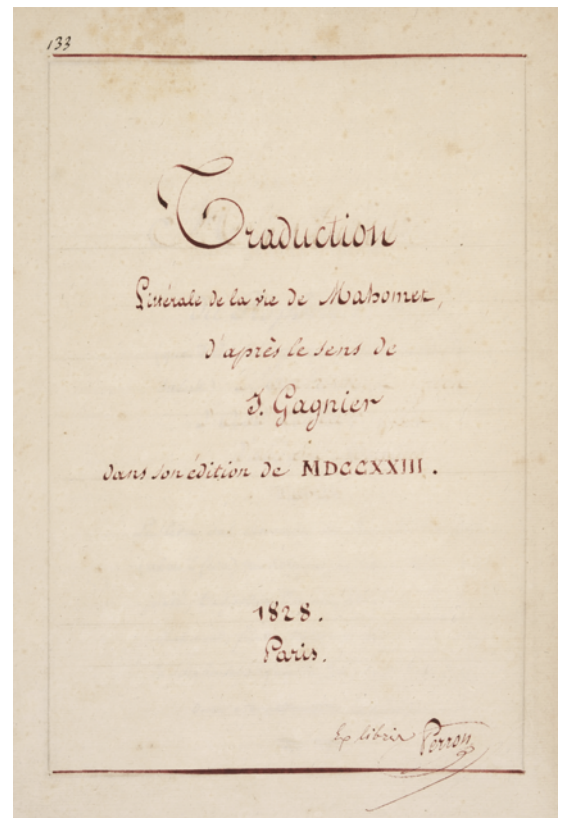 133
Traduction
Littérale de la vie de Mahomet,
d'après le sens de
J. Gagnier
dans son édition de MDCCXXIII.
1828.
Paris.
Ex libris Perron